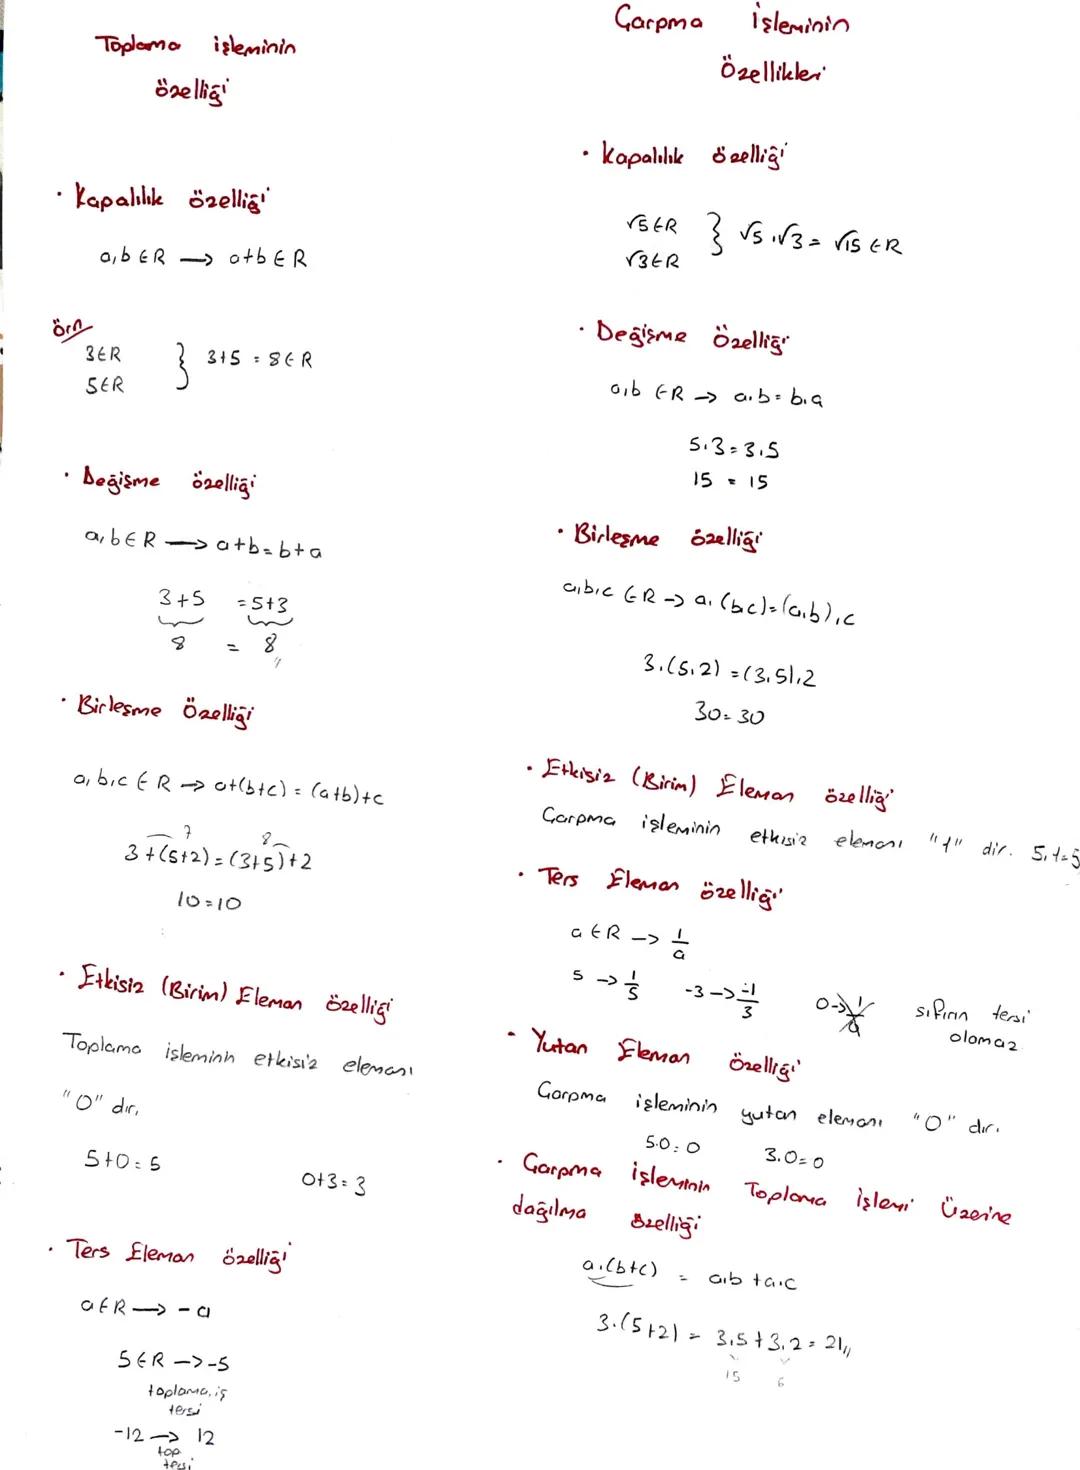 Toplama işleminin
özelliği
• Kapalılık özelliği
a,b ∈ R → a+b ∈ R
örn
3∈R
5∈R
} 3+5 = 8 ∈ R
• Değişme özelliği
a,b ∈ R → a+b = b+a
3+5 = 5+3
8 = 8
• Birleşme Özelliği
a,b,c ∈ R → a+(b+c) = (a+b)+c
7 8
3+(5+2) = (3+5)+2
10=10
• Etkisiz (Birim) Eleman özelliği
Toplama işleminin etkisiz elemanı
"0" dır.
5+0=5 0+3=3
• Ters Eleman özelliği
a∈R → -a
5∈R → -5
toplama.iş
tersi
-12 → 12
top
tersi
Çarpma İşleminin
Özellikleri
• Kapalılık özelliği
√5∈R
√3∈R
} √5.√3 = √15 ∈ R
• Değişme Özelliği
a,b ∈R → a.b = b.a
5.3=3.5
15 = 15
• Birleşme özelliği
a,b,c ∈R → a.(b.c)=(a.b).c
3.(5.2) =(3.5).2
30=30
• Etkisiz (Birim) Eleman özelliği
Çarpma işleminin etkisiz elemanı "1" dir. 5.1=5
• Ters Eleman özelliği
a ∈R → 1/a
5 → 1/5 -3 → -1/3 0 → 1/0 sıfırın tersi
olamaz
• Yutan Eleman Özelliği
Çarpma işleminin yutan elemanı "0" dır.
5.0=0 3.0=0
• Çarpma işleminin Toplama işlemi Üzerine
dağılma özelliği
a.(b+c) = a.b + a.c
3.(5+2) = 3.5 + 3.2 = 21
15 6